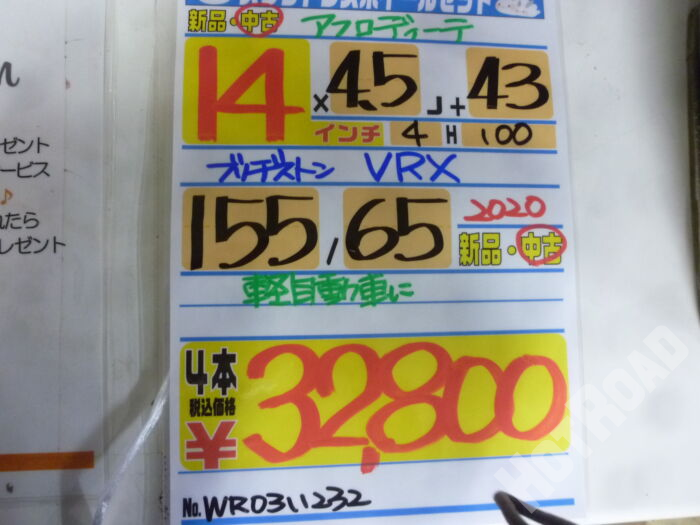 新品・中古 アフロディーテ
14 × 4.5 J + 43
インチ 4 H 100
ブリヂストン VRX
155 / 65 2020
新品・中古
軽自動車に
4本
税込価格
¥32,800
No. WR0311232
ゼント
ービス
れたら
レゼント
HighROAD